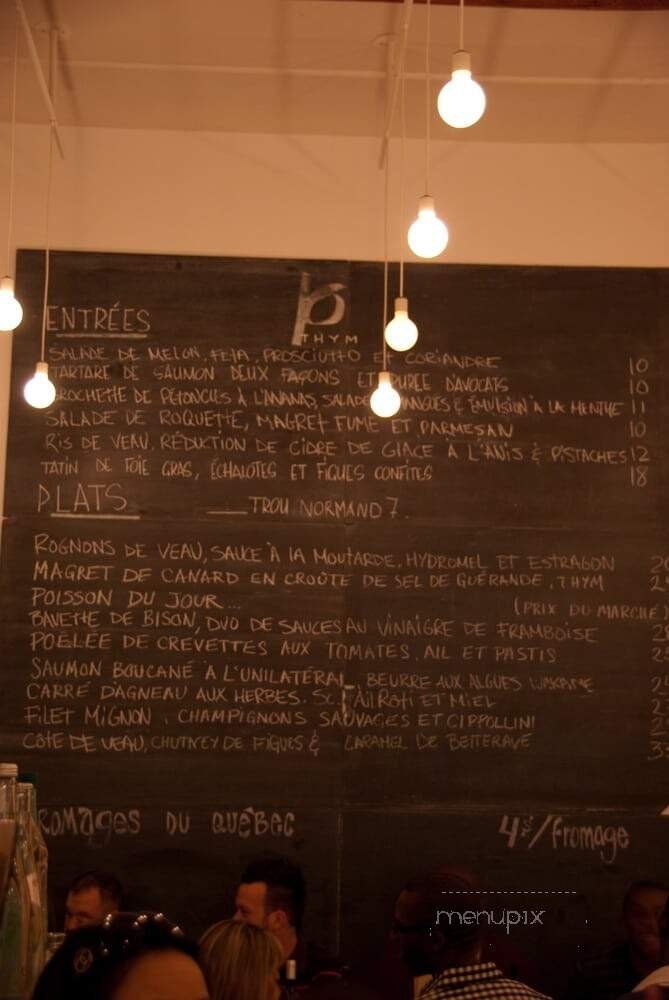 THYM
ENTRÉES
SALADE DE MELON, FETA, PROSCIUTTO ET CORIANDRE 10
TARTARE DE SAUMON DEUX FAÇONS ET PUREE D'AVOCATS 10
BROCHETTE DE PÉTONCLES À L'ANANAS, SALADE & ÉMULSION À LA MENTHE 11
SALADE DE ROQUETTE, MAGRET FUMÉ ET PARMESAN 10
RIS DE VEAU, RÉDUCTION DE CIDRE DE GLACE À L'ANIS & PISTACHES 12
TATIN DE FOIE GRAS, ÉCHALOTES ET FIGUES CONFITES 18
PLATS
TROU NORMAND 7.
ROGNONS DE VEAU, SAUCE À LA MOUTARDE, HYDROMEL ET ESTRAGON
MAGRET DE CANARD EN CROÛTE DE SEL DE GUÉRANDE, THYM
POISSON DU JOUR... (PRIX DU MARCHÉ)
BAVETTE DE BISON, DUO DE SAUCES AU VINAIGRE DE FRAMBOISE
POÊLÉE DE CREVETTES AUX TOMATES, AIL ET PASTIS
SAUMON BOUCANÉ À L'UNILATÉRAL BEURRE AUX ALGUES WAKAME
CARRÉ D'AGNEAU AUX HERBES, AIL RÔTI ET MIEL
FILET MIGNON, CHAMPIGNONS SAUVAGES ET CIPPOLLINI
CÔTE DE VEAU, CHUTNEY DE FIGUES & CARAMEL DE BETTERAVE
FROMAGES DU QUÉBEC 4$/fromage
menupix